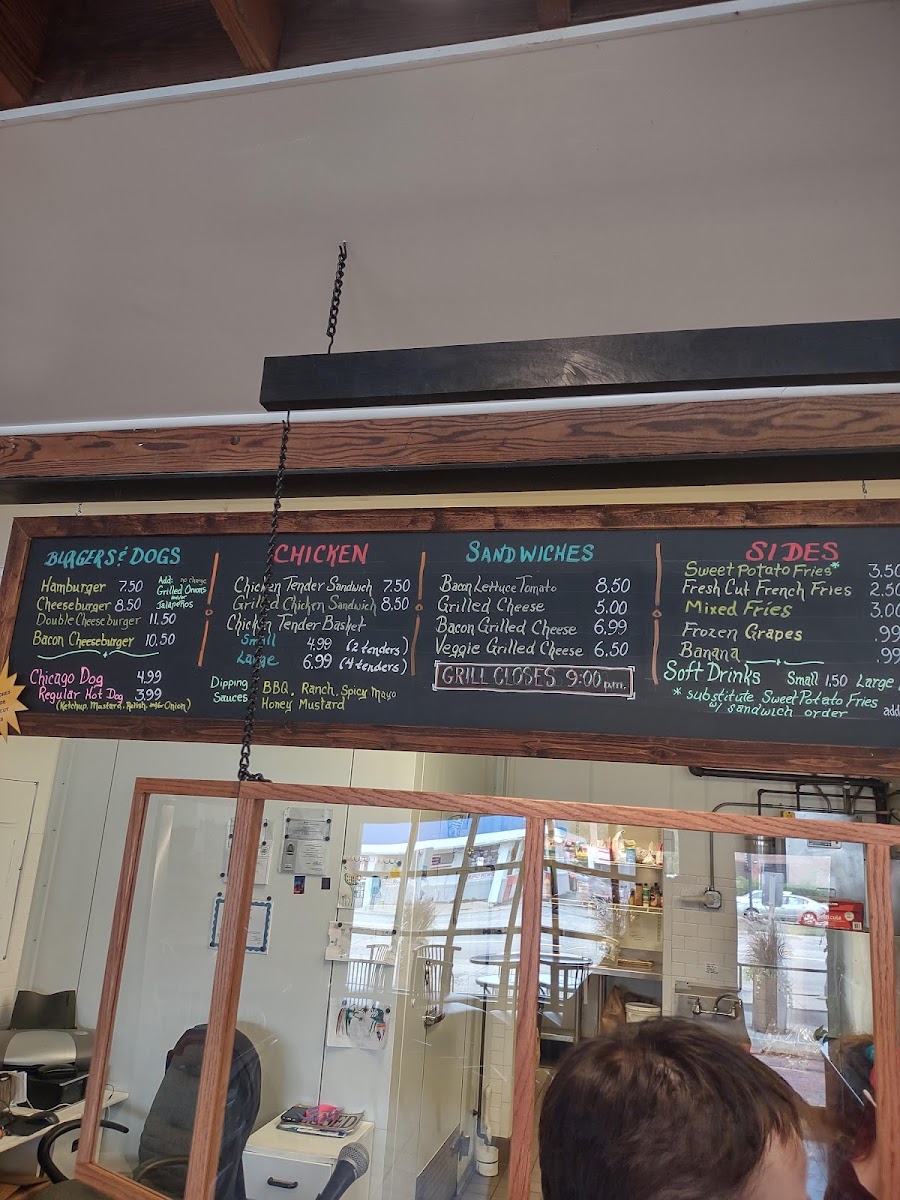 BURGERS & DOGS
Hamburger 7.50
Cheeseburger 8.50
Double Cheeseburger 11.50
Bacon Cheeseburger 10.50
Add: no charge
Grilled Onions
and/or
Jalapeños
Chicago Dog 4.99
Regular Hot Dog 3.99
(Ketchup, Mustard, Relish, and/or Onion)
CHICKEN
Chicken Tender Sandwich 7.50
Grilled Chicken Sandwich 8.50
Chicken Tender Basket
Small 4.99 (2 tenders)
Large 6.99 (4 tenders)
Dipping Sauces
BBQ, Ranch, Spicy Mayo
Honey Mustard
SANDWICHES
Bacon Lettuce Tomato 8.50
Grilled Cheese 5.00
Bacon Grilled Cheese 6.99
Veggie Grilled Cheese 6.50
GRILL CLOSES 9:00 p.m.
SIDES
Sweet Potato Fries* 3.50
Fresh Cut French Fries 2.50
Mixed Fries 3.00
Frozen Grapes .99
Banana .99
Soft Drinks Small 1.50 Large
* substitute Sweet Potato Fries
w/ sandwich order add